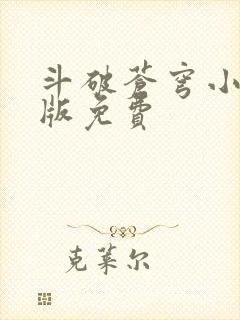 斗破苍穹小
版免費
克莱尔